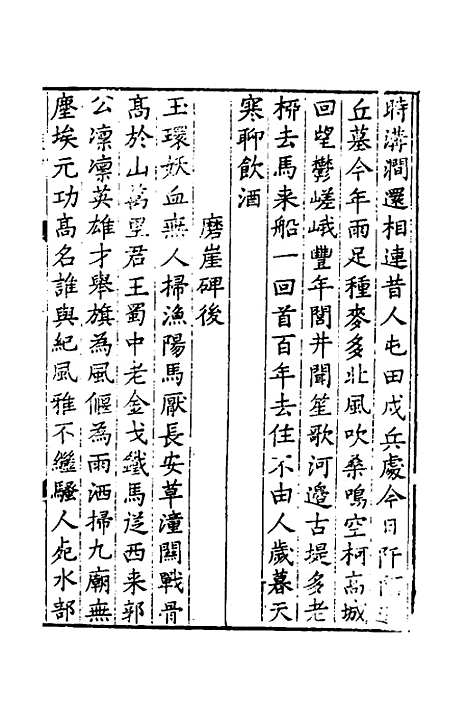 時溝澗還相連昔人屯田戍兵處今日阡
丘墓今年雨足種麥多北風吹桑鳴空柯高城
回望鬱嵯峨豐年閭井聞笙歌河邊古堤多老
柳去馬来船一回首百年去住不由人歲暮天
寒聊飲酒
磨崖碑後
玉環妖血無人掃漁陽馬厭長安草潼關戰骨
髙於山萬里君王蜀中老金戈鐵馬從西来郭
公凛凛英雄才舉旗為風偃為雨洒掃九廟無
塵埃元功髙名誰與紀風雅不繼騷人死水部